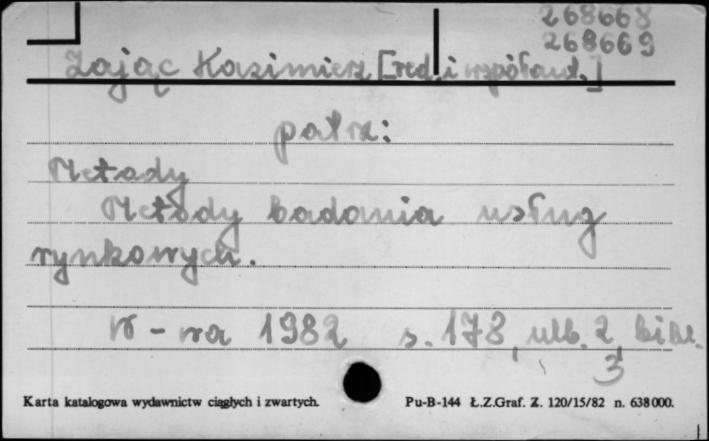 268668
268669
Zając Kazimierz [red. i współaut.]
patrz:
Metody
Metody badania usług
rynkowych.
W-wa 1982 s. 178, ulb. 2, bibl.
3
Karta katalogowa wydawnictw ciągłych i zwartych. Pu-B-144 Ł.Z.Graf. Z. 120/15/82 n. 638000.